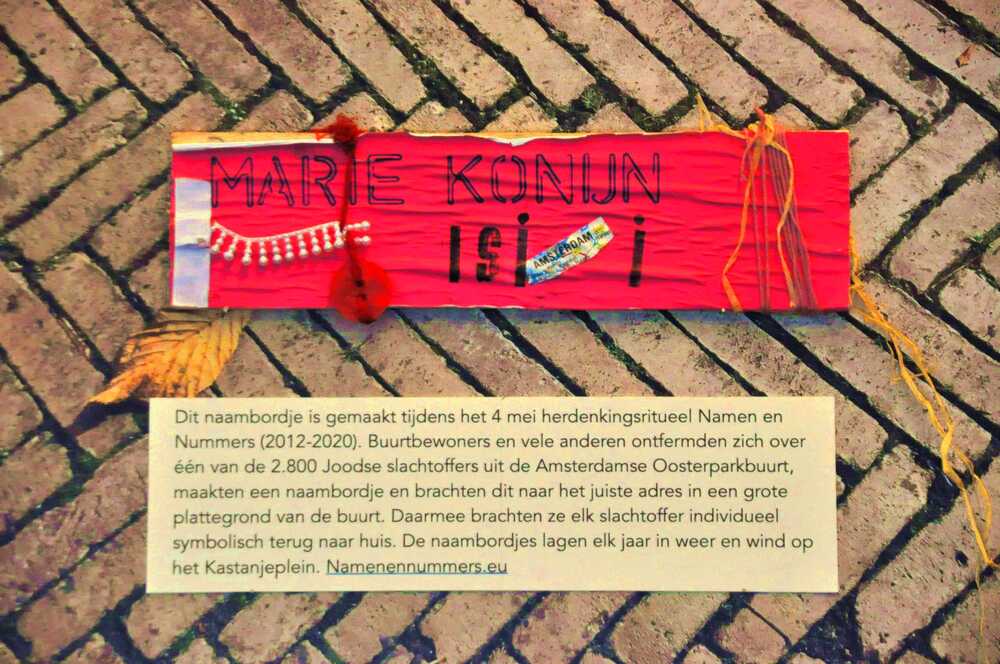 MARIE KONIJN
ISi AMSTERDAM i
Dit naambordje is gemaakt tijdens het 4 mei herdenkingsritueel Namen en
Nummers (2012-2020). Buurtbewoners en vele anderen ontfermden zich over
één van de 2.800 Joodse slachtoffers uit de Amsterdamse Oosterparkbuurt,
maakten een naambordje en brachten dit naar het juiste adres in een grote
plattegrond van de buurt. Daarmee brachten ze elk slachtoffer individueel
symbolisch terug naar huis. De naambordjes lagen elk jaar in weer en wind op
het Kastanjeplein. Namenennummers.eu